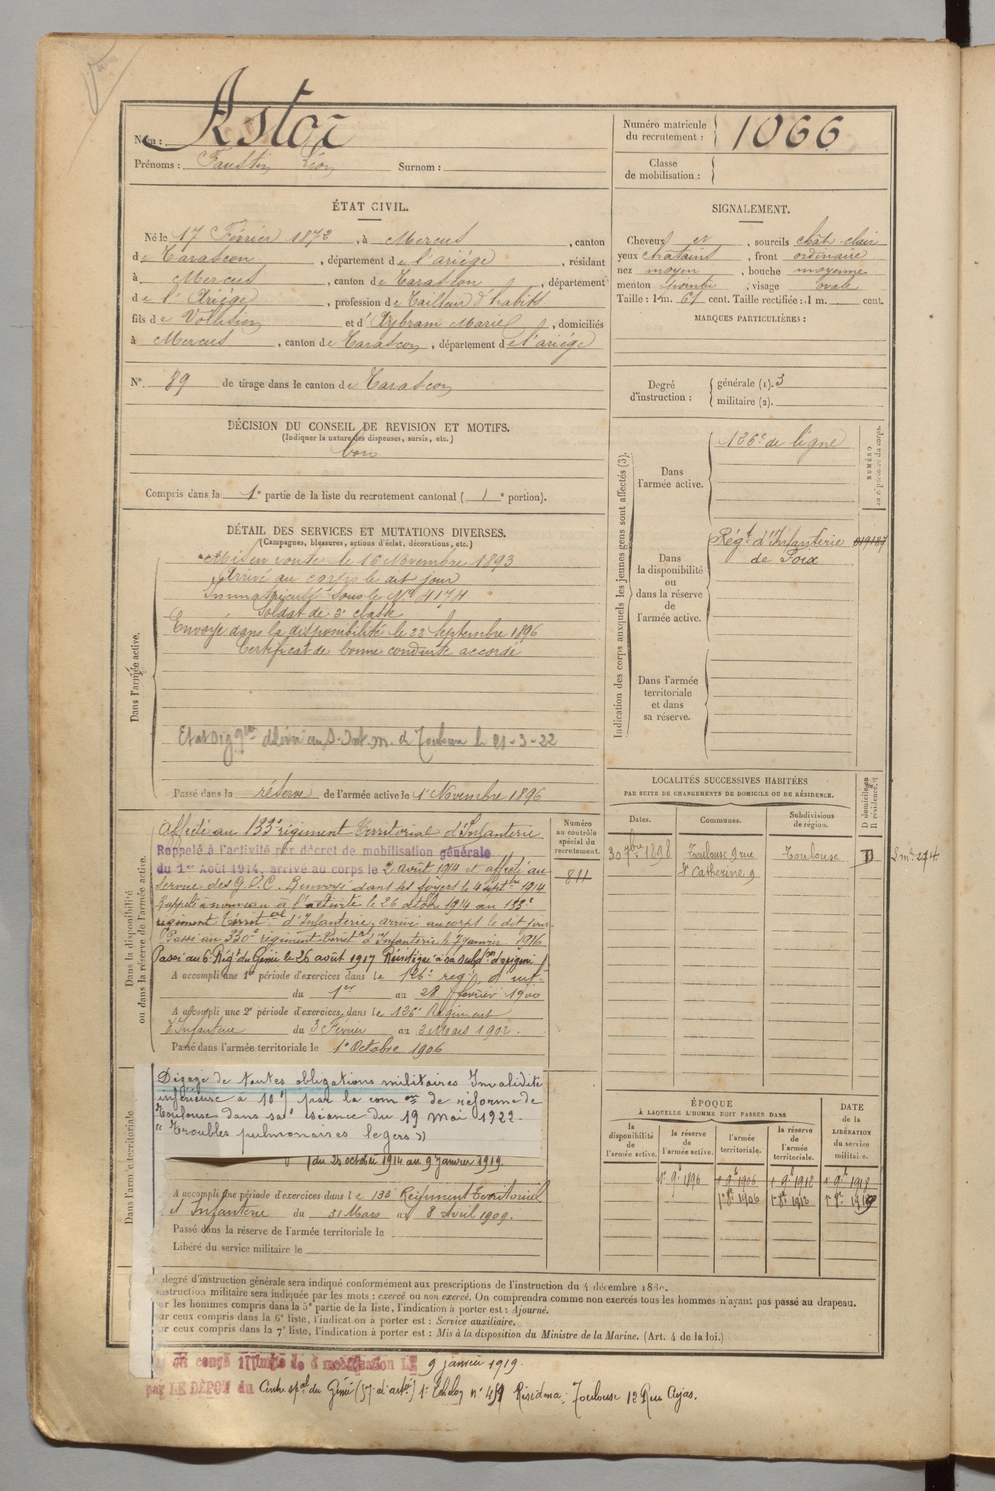 Nom : Astor
Prénoms : Faustin Léon Surnom :
Numéro matricule du recrutement : 1066
Classe de mobilisation :
ÉTAT CIVIL.
Né le 17 Février 1872, à Mercus, canton
de Tarascon, département de l'ariége, résidant
à Mercus, canton de Tarascon, département
de l'Ariége, profession de Tailleur d'habits
fils de Volusien et d'Azbram Marie, domiciliés
à Mercus, canton de Tarascon, département de l'ariége
N° 89 de tirage dans le canton de Tarascon
SIGNALEMENT.
Cheveux et, sourcils chât-clair
yeux chatains, front ordinaire
nez moyen, bouche moyenne
menton, visage ovale
Taille : 1 m. 61 cent. Taille rectifiée : 1 m. cent.
MARQUES PARTICULIÈRES :
Degré d'instruction : générale (1). 3
militaire (2).
DÉCISION DU CONSEIL DE REVISION ET MOTIFS.
(Indiquer la nature des dispenses, sursis, etc.)
bon
Compris dans la 1e partie de la liste du recrutement cantonal (1e portion).
DÉTAIL DES SERVICES ET MUTATIONS DIVERSES.
(Campagnes, blessures, actions d'éclat, décorations, etc.)
Dans l'armée active.
Mis en route le 16 Novembre 1893
Arrivé au corps le dit jour
Immatriculé sous le N° 4174
Soldat de 2e classe
Envoyé dans la disponibilité le 23 Septembre 1896
Certificat de bonne conduite accordé
Toulouse le 21-3-22
Passé dans la réserve de l'armée active le 1er Novembre 1896
Indication des corps auxquels les jeunes gens sont affectés (3).
Dans l'armée active.
126e de ligne
NUMÉRO au répertoire du corps.
Dans la disponibilité ou dans la réserve de l'armée active.
Régt d'Infanterie
de Foix
Dans l'armée territoriale et dans sa réserve.
Dans la disponibilité ou dans la réserve de l'armée active.
Affecté au 133e régiment Territorial d'Infanterie.
Rappelé à l'activité par décret de mobilisation générale
du 1er Août 1914, arrivé au corps le 2 août 1914 et affecté au
service des G.V.C. Renvoyé dans ses foyers le 4 septbre 1914
Rappelé à nouveau à l'activité le 26 octobre 1914 au 133e
régiment Territal d'Infanterie, arrivé au corps le dit jour
Passé au 330e régiment Territal d'Infanterie le 7 janvier 1916
Passé au 6e Régt du Génie le 26 août 1917 Réintégré à sa subdon d'origine
A accompli une 1re période d'exercices dans le 126e régt d'inf.
du 1er au 28 février 1900
A accompli une 2e période d'exercices dans le 126e Régiment
d'Infanterie du 3 Février au 2 Mars 1902.
Passé dans l'armée territoriale le 1er Octobre 1906
Numéro au contrôle spécial du recrutement.
811
LOCALITÉS SUCCESSIVES HABITÉES
PAR SUITE DE CHANGEMENTS DE DOMICILE OU DE RÉSIDENCE.
Dates. Communes. Subdivisions de région. D domicile ou R résidence.
30 7bre 1898 Toulouse 9 rue Toulouse D
St Catherine 9
Dans l'armée territoriale
Dégagé de toutes obligations militaires Invalidité
inférieure à 10% par la com on de réforme de
Toulouse dans sa séance du 19 mai 1922-
« Troubles pulmonaires légers »
du 26 octobre 1914 au 9 janvier 1919.
A accompli une période d'exercices dans le 133e Régiment Territorial
d'Infanterie du 31 Mars au 8 Avril 1909.
Passé dans la réserve de l'armée territoriale le
Libéré du service militaire le
ÉPOQUE
À LAQUELLE L'HOMME DOIT PASSER DANS
la disponibilité de l'armée active. la réserve de l'armée active. l'armée territoriale. la réserve de l'armée territoriale.
DATE de la LIBÉRATION du service militaire.
1er 9e 1896 1er 9e 1906 1er 9e 1912 1er 9e 1918
1er 8e 1906 1er 8e 1912 1er 8e 1919
degré d'instruction générale sera indiqué conformément aux prescriptions de l'instruction du 4 décembre
instruction militaire sera indiquée par les mots : exercé ou non exercé. On comprendra comme non exercés tous les hommes n'ayant pas passé au drapeau.
ur les hommes compris dans la 5e partie de la liste, l'indication à porter est : Ajourné.
ur ceux compris dans la 6e liste, l'indication à porter est : Service auxiliaire.
ur ceux compris dans la 7e liste, l'indication à porter est : Mis à la disposition du Ministre de la Marine. (Art. 4 de la loi.)
en congé illimité de démobilisation LE 9 janvier 1919.
par LE DÉPÔT du Centre spal du Génie Résidence : Toulouse 12 Rue Cujas.